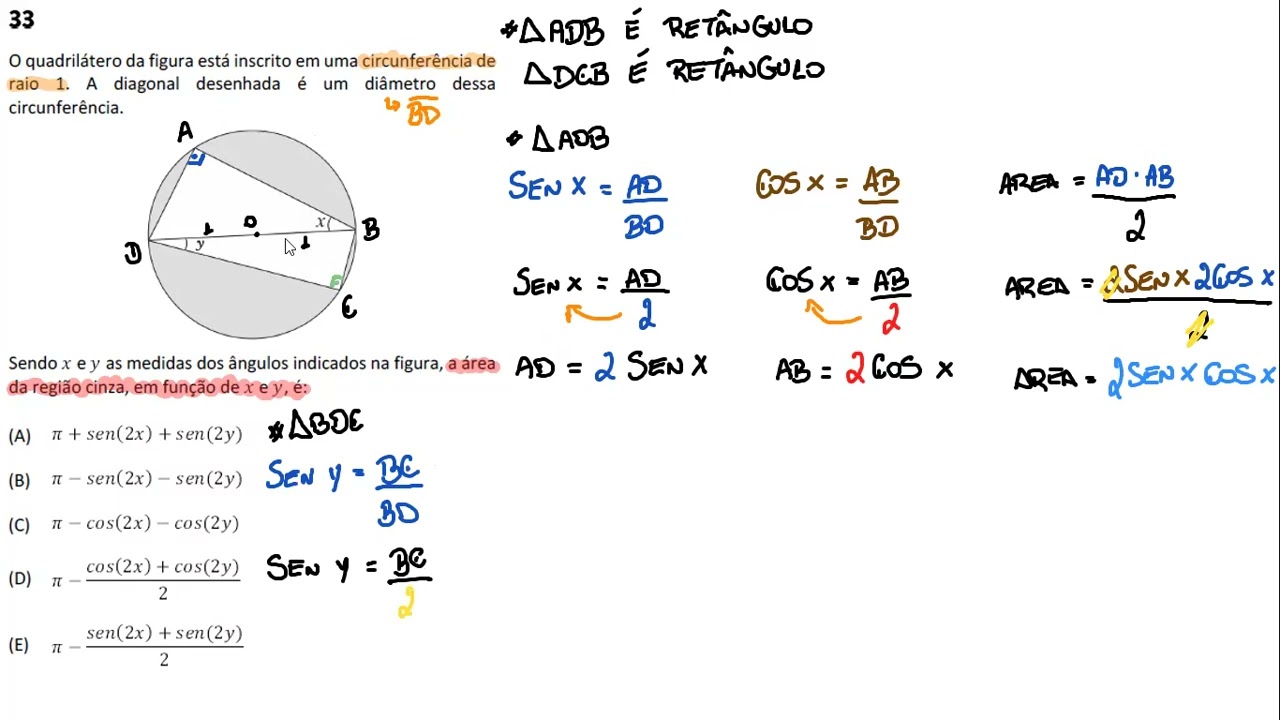 33
O quadrilátero da figura está inscrito em uma circunferência de
raio 1. A diagonal desenhada é um diâmetro dessa
circunferência.
BD
A
D
B
C
O
1
1
x
y
Sendo x e y as medidas dos ângulos indicados na figura, a área
da região cinza, em função de x e y, é:
(A) π + sen(2x) + sen(2y)
(B) π − sen(2x) − sen(2y)
(C) π − cos(2x) − cos(2y)
(D) π − cos(2x) + cos(2y) / 2
(E) π − sen(2x) + sen(2y) / 2
* △BDC
SEN Y = BC / BD
SEN Y = BC / 2
* △ADB É RETÂNGULO
△DCB É RETÂNGULO
* △ADB
SEN X = AD / BD
SEN X = AD / 2
AD = 2 SEN X
COS X = AB / BD
COS X = AB / 2
AB = 2 COS X
AREA = AD · AB / 2
AREA = 2 SEN X 2 COS X / 2
AREA = 2 SEN X COS X